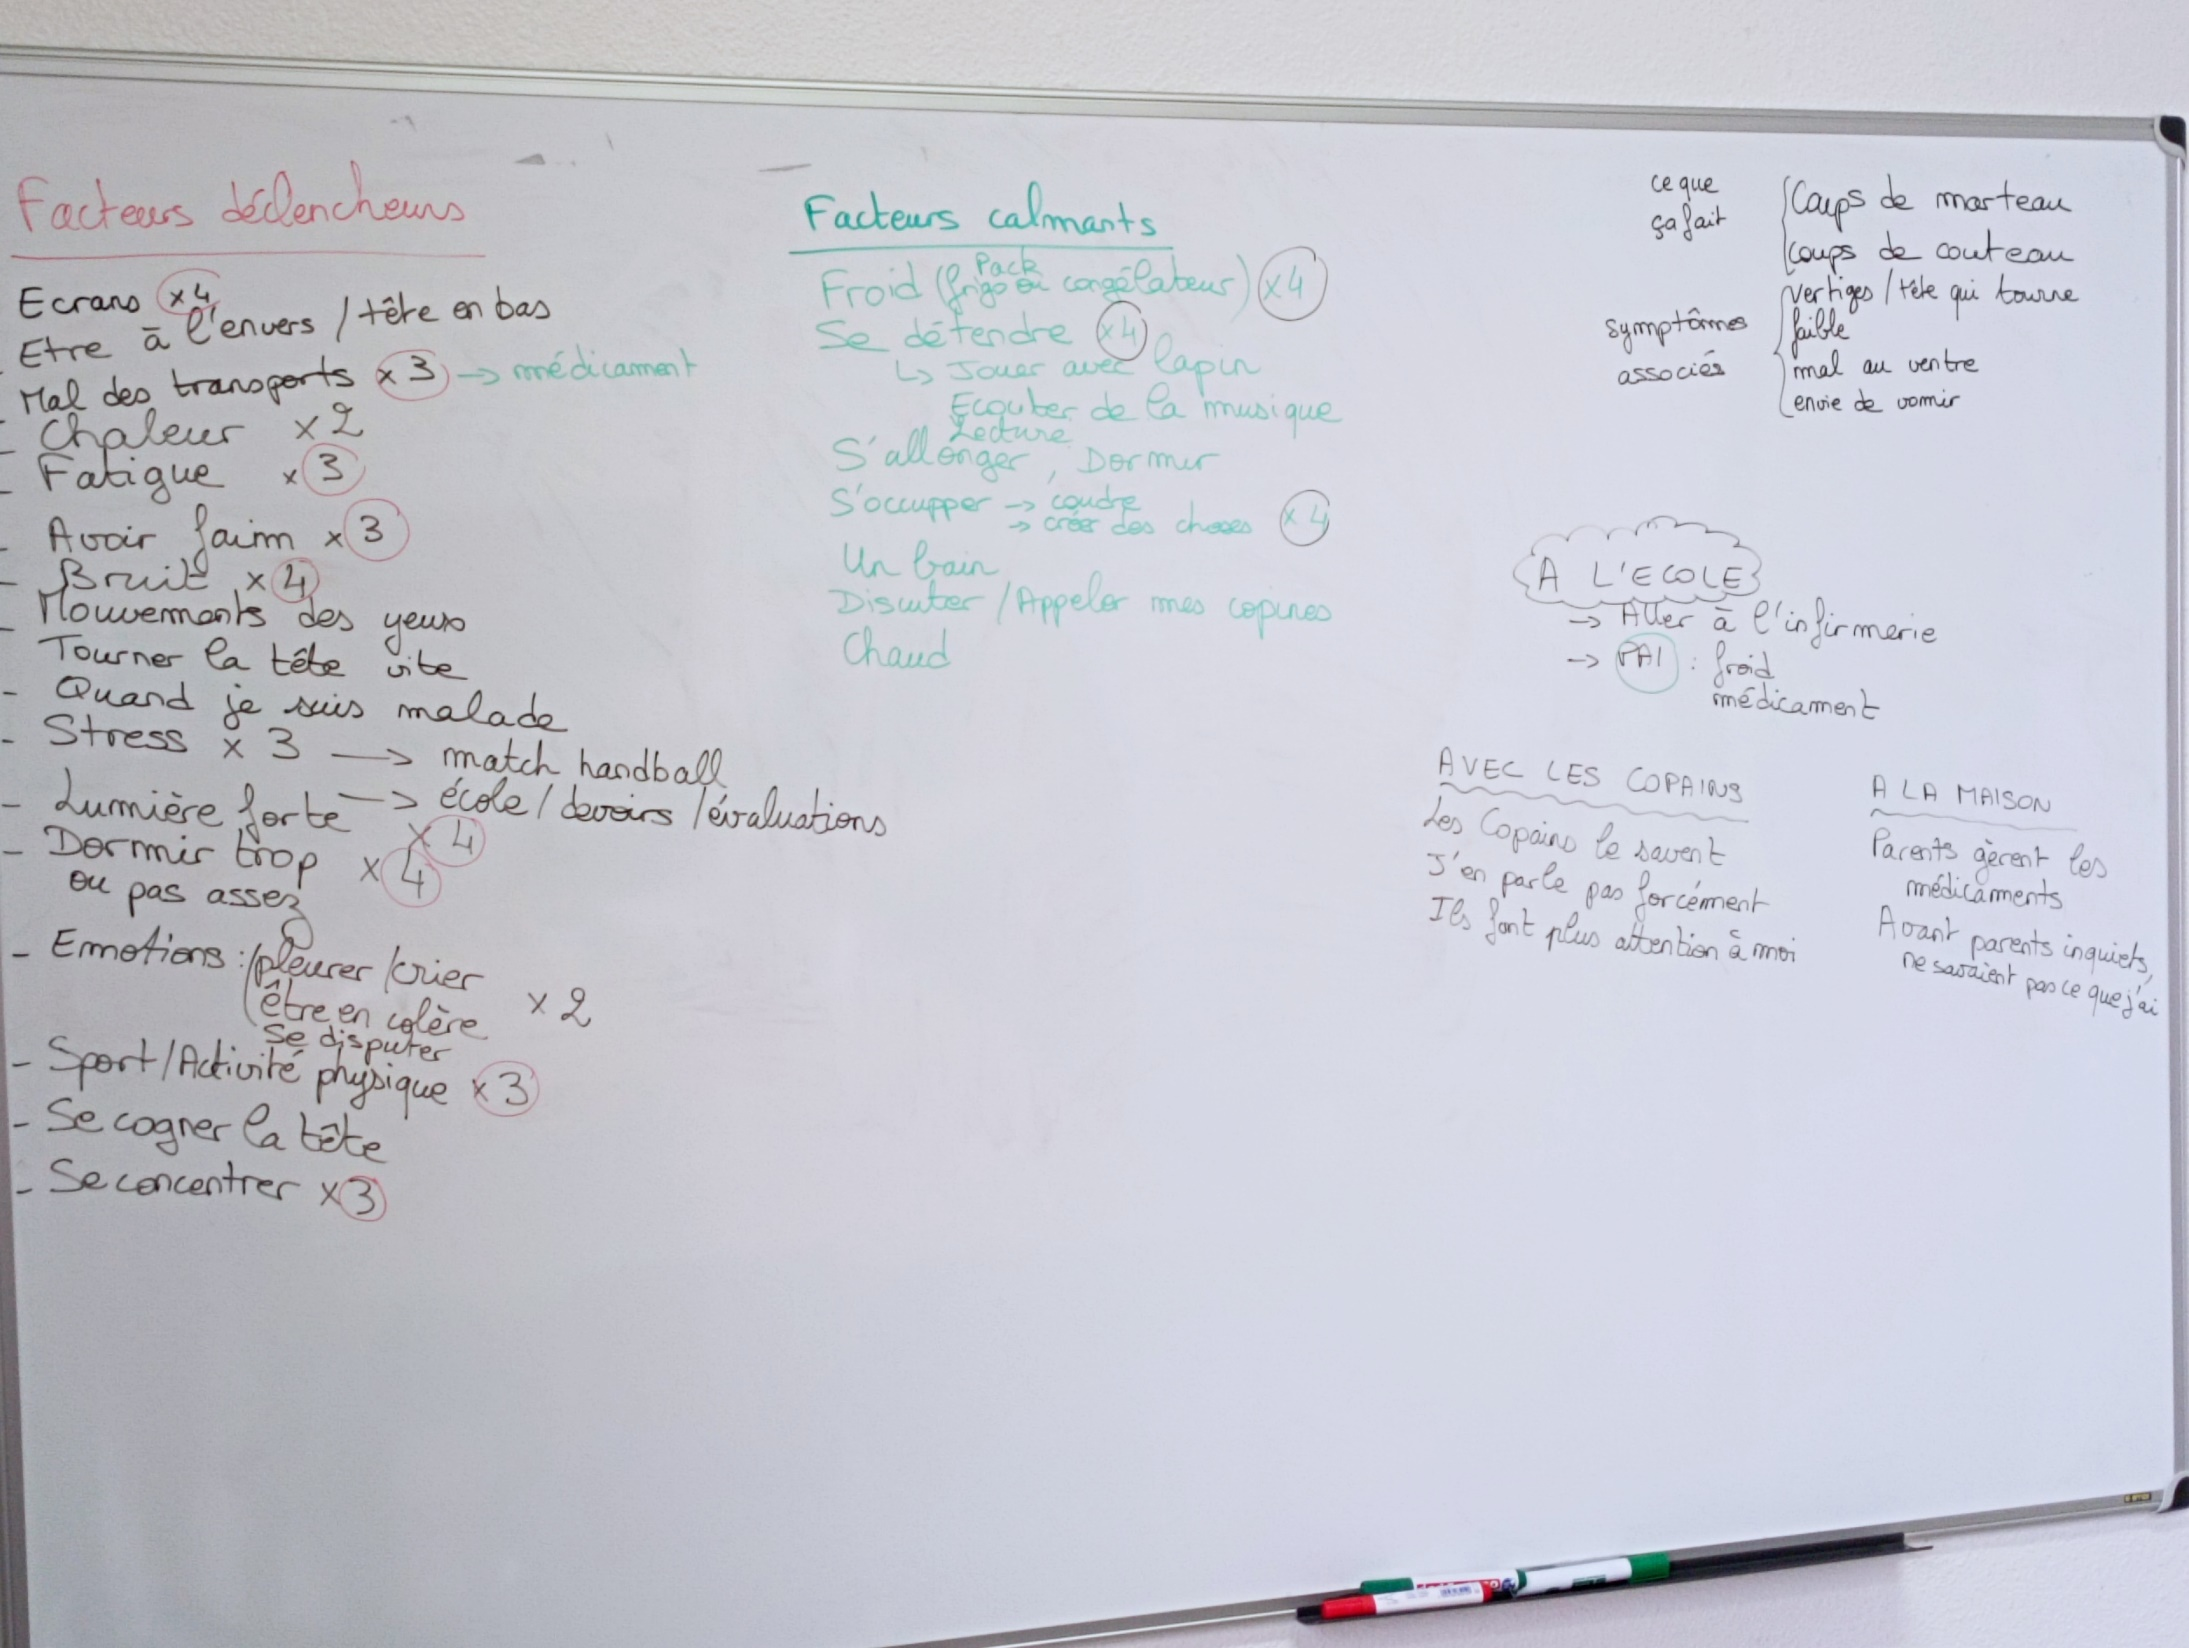 Facteurs déclencheurs
Ecrans x4
- Etre à l'envers / tête en bas
- Mal des transports x 3 → médicament
- Chaleur x2
- Fatigue x 3
- Avoir faim x 3
- Bruit x 4
- Mouvements des yeux
Tourner la tête vite
- Quand je suis malade
- Stress x 3 → match handball
→ école / devoirs / évaluations
- Lumière forte x 4
- Dormir trop x 4
ou pas assez
- Emotions : pleurer / crier
être en colère x 2
se disputer
- Sport / Activité physique x 3
- Se cogner la tête
- Se concentrer x 3
Facteurs calmants
Pack
Froid (frigo ou congélateur) x4
Se détendre x4
↳ Jouer avec lapin
Ecouter de la musique
Lecture
S'allonger, Dormir
S'occupper → coudre
→ créer des choses x 4
Un bain
Discuter / Appeler mes copines
Chaud
ce que
ça fait
Coups de marteau
coups de couteau
symptômes
associés
vertiges / tête qui tourne
faible
mal au ventre
envie de vomir
A L'ECOLE
→ Aller à l'infirmerie
→ PAI : froid
médicament
AVEC LES COPAINS
Les Copains le savent
J'en parle pas forcément
Ils font plus attention à moi
A LA MAISON
Parents gèrent les
médicaments
Avant parents inquiets,
ne savaient pas ce que j'ai